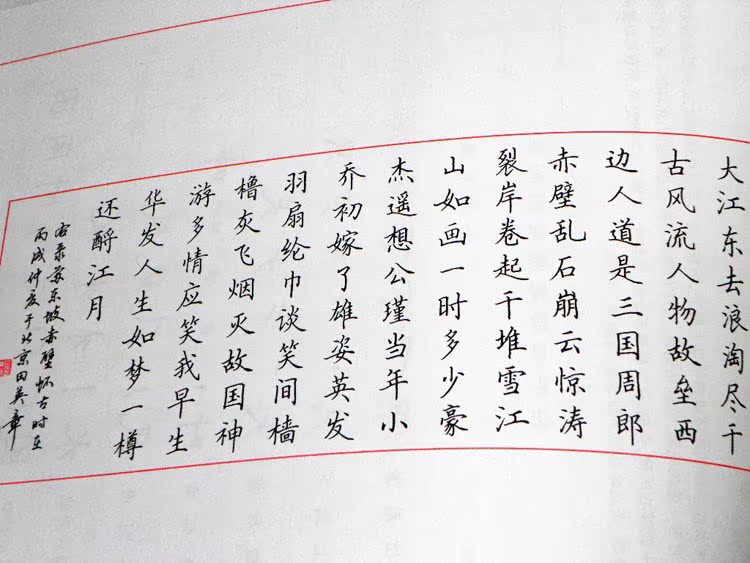 大江东去浪淘尽千
古风流人物故垒西
边人道是三国周郎
赤壁乱石崩云惊涛
裂岸卷起千堆雪江
山如画一时多少豪
杰遥想公瑾当年小
乔初嫁了雄姿英发
羽扇纶巾谈笑间樯
橹灰飞烟灭故国神
游多情应笑我早生
华发人生如梦一樽
还酹江月
右录苏东坡赤壁怀古时在
丙戌仲夏于北京田英章